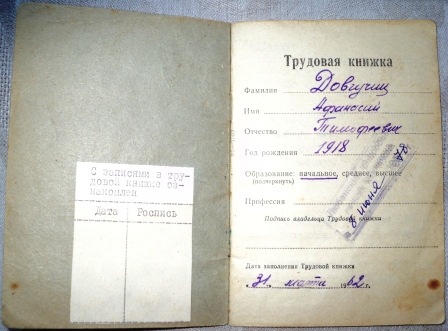 С записями в тру-
довой книжке оз-
накомлен
Дата Роспись
Трудовая книжка
Фамилия Довгучиц
Имя Афанасий
Отчество Тимофеевич
Год рождения 1918
Образование: начальное, среднее, высшее
(подчеркнуть)
Профессия
8 июня 78
Подпись владельца Трудовой книжки
Дата заполнения Трудовой книжки
"31" марта 1962 г.